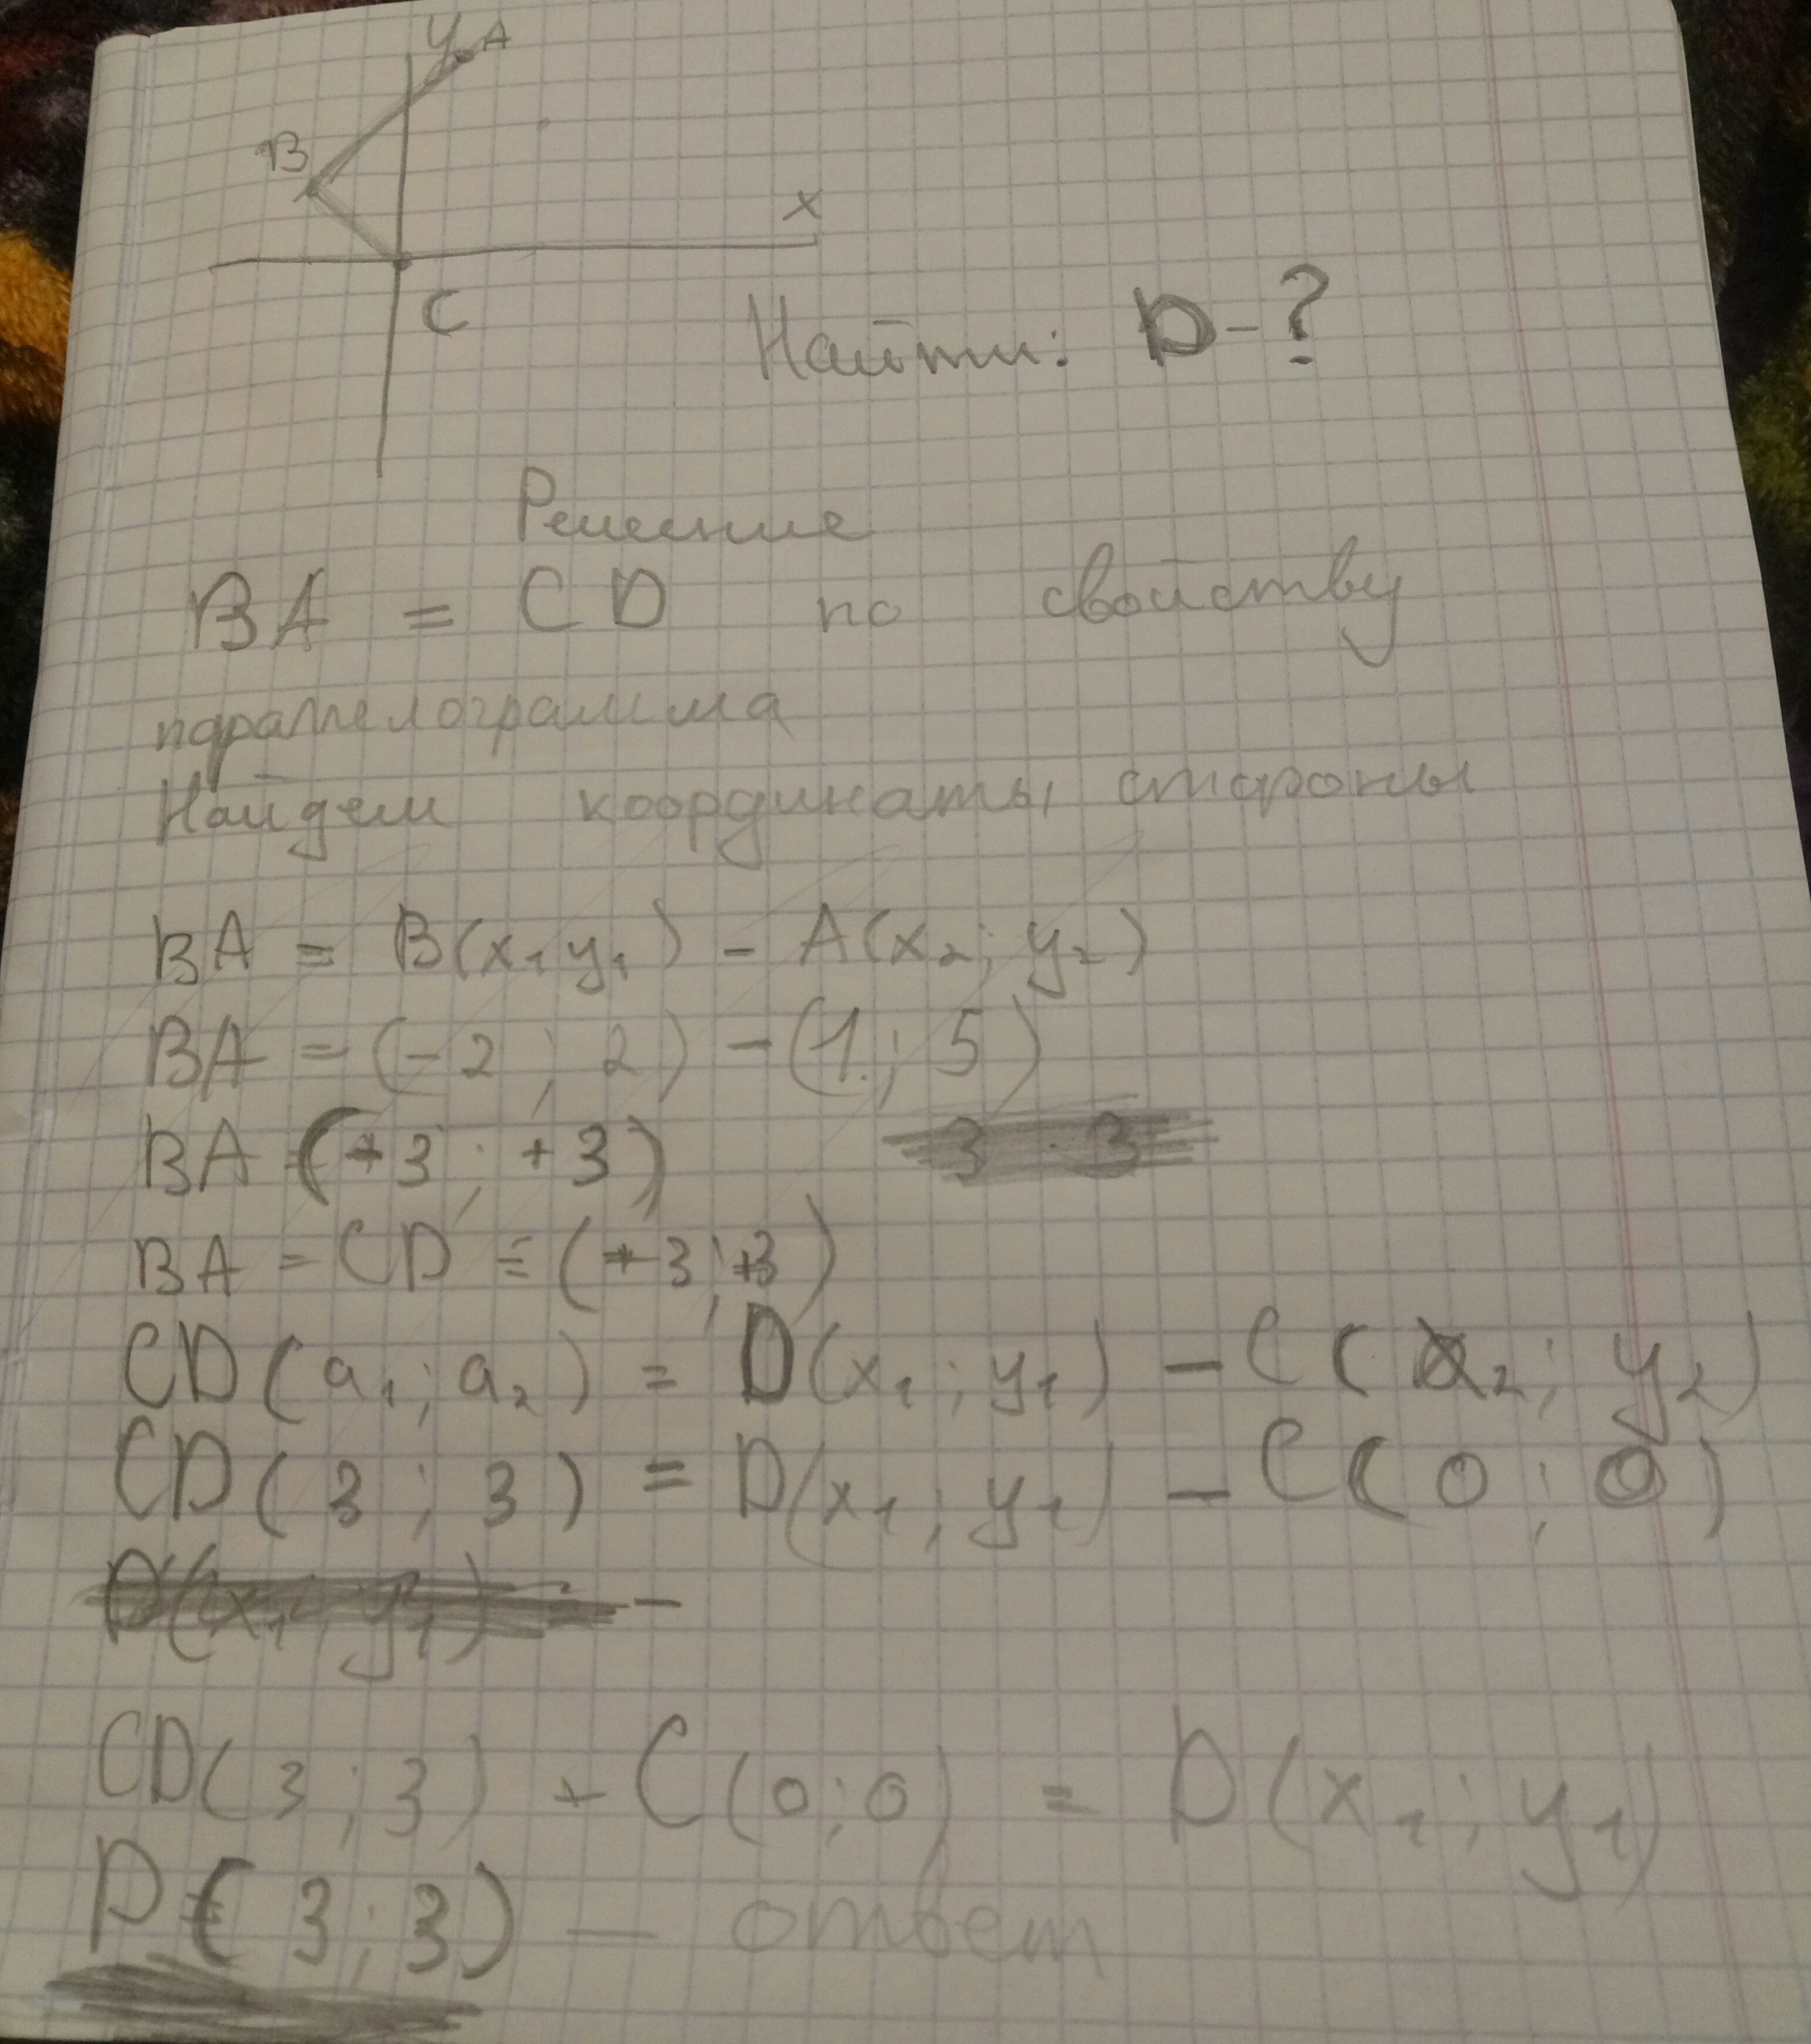 y A
B
x
C
Найти: D - ?
Решение
BA = CD по свойству
параллелограмма
Найдем координаты стороны
BA = B(x₁ y₁) - A(x₂; y₂)
BA = (-2; 2) - (1; 5)
BA = (+3; +3) 3 3
BA = CD = (+3; +3)
CD(a₁; a₂) = D(x₁; y₁) - C(x₂; y₂)
CD(3; 3) = D(x₁; y₁) - C(0; 0)
D(x₁; y₁) -
CD(3; 3) + C(0; 0) = D(x₁; y₁)
D=(3; 3) - ответ